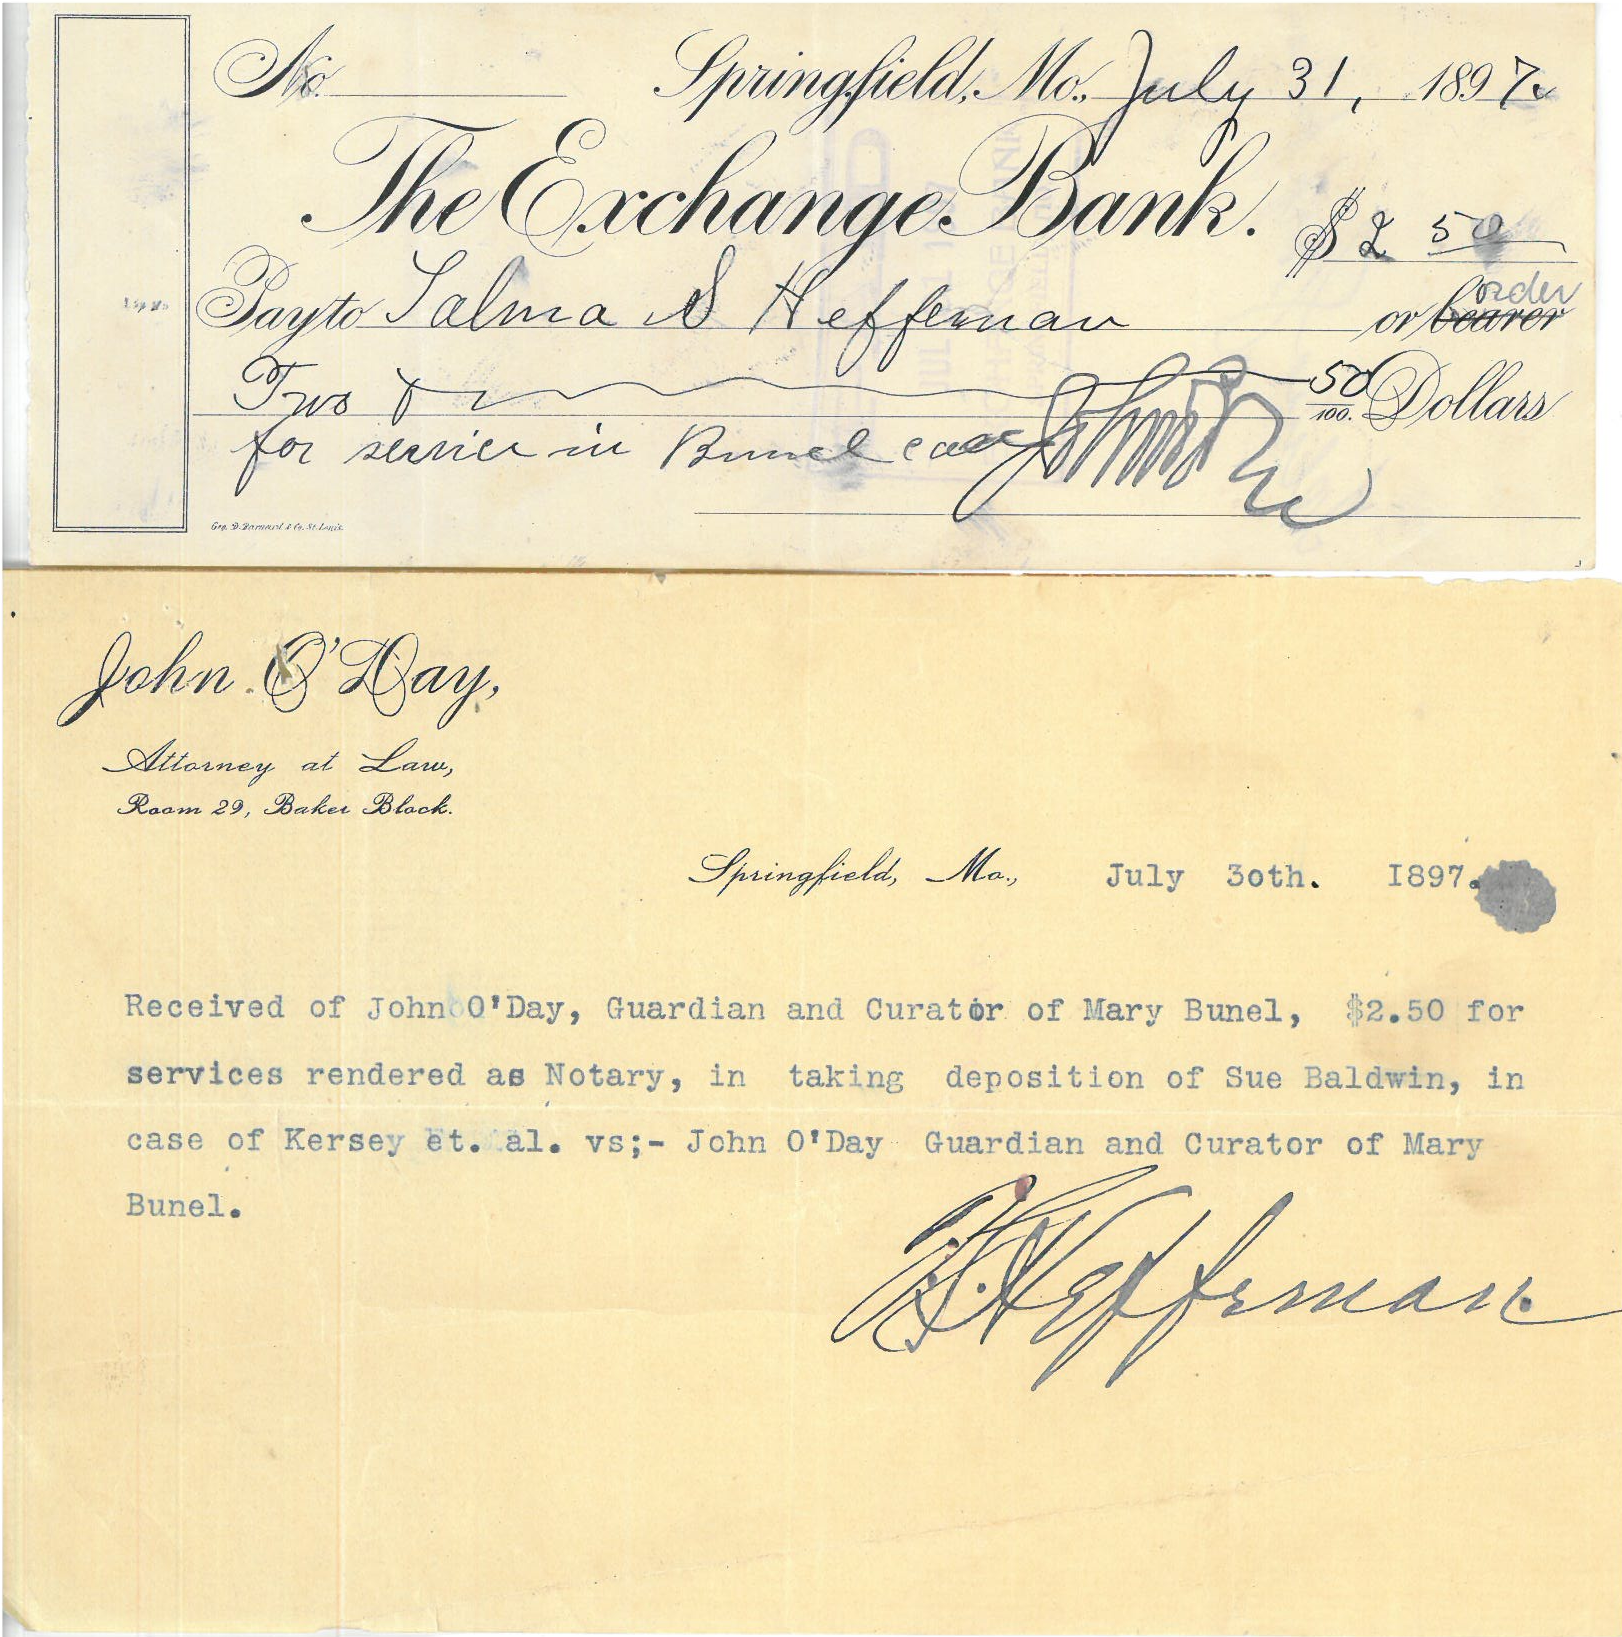 No.
Springfield, Mo., July 31, 1897.
The Exchange Bank.
$2 50
Pay to Talma S Heffernan or bearer order
Two & 50/100. Dollars
for service in Bunel case
Geo. D. Barnard & Co. St. Louis.
John O'Day,
Attorney at Law,
Room 29, Baker Block.
Springfield, Mo., July 3oth. I897.
Received of John O'Day, Guardian and Curator of Mary Bunel, $2.50 for
services rendered as Notary, in taking deposition of Sue Baldwin, in
case of Kersey et. al. vs;- John O'Day Guardian and Curator of Mary
Bunel.
T.S. Heffernan.